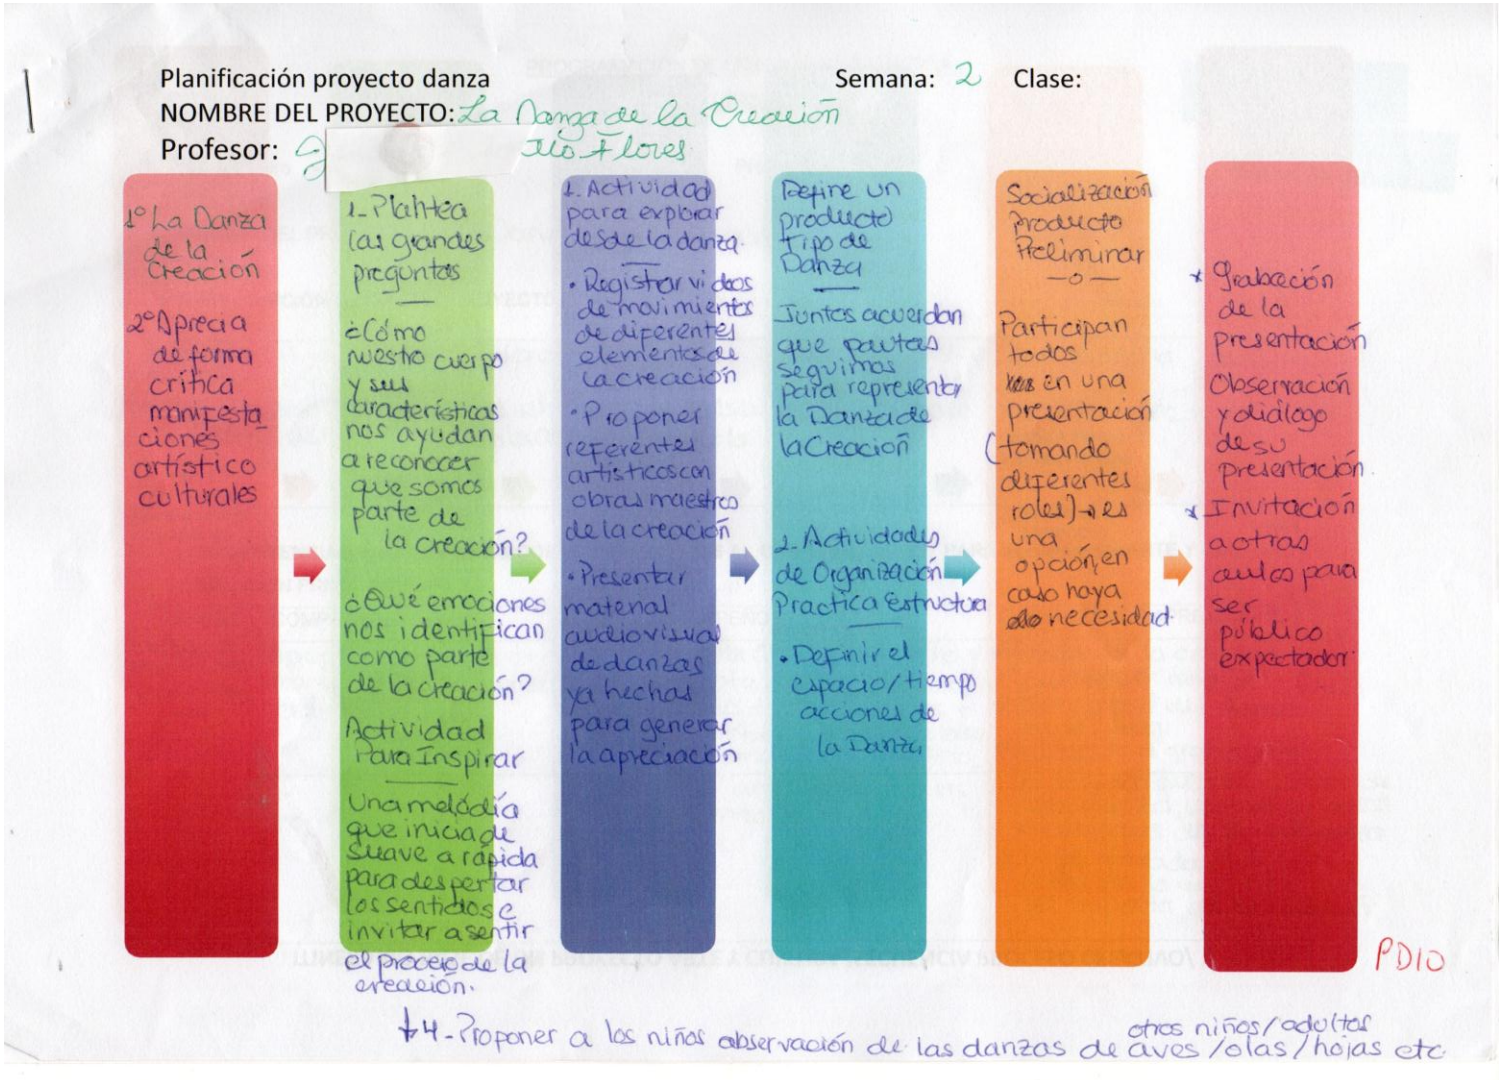 Planificación proyecto danza
Semana: 2 Clase:
NOMBRE DEL PROYECTO: La Danza de la Creación
Profesor: Flores
1º La Danza
de la
Creación
2º Aprecia
de forma
crítica
manifesta
ciones
artístico
culturales
1- Plantea
las grandes
preguntas
¿Cómo
nuestro cuerpo
y sus
características
nos ayudan
a reconocer
que somos
parte de
la creación?
¿Qué emociones
nos identifican
como parte
de la creación?
Actividad
Para Inspirar
Una melodía
que inicia de
suave a rápida
para despertar
los sentidos e
invitar a sentir
el proceso de la
creación.
1. Actividad
para explorar
desde la danza.
• Registrar videos
de movimientos
de diferentes
elementos de
la creación
• Proponer
referentes
artísticos con
obras maestras
de la creación
• Presentar
material
audiovisual
de danzas
ya hechas
para generar
la apreciación
Define un
producto
tipo de
Danza
Juntos acuerdan
que pautas
seguimos
para representar
la Danza de
la Creación
2- Actividades
de Organización
Practica Estructura
• Definir el
espacio/tiempo
acciones de
la Danza
Socialización
Producto
Preliminar
-o-
Participan
todos
en una
presentación
(tomando
diferentes
roles) → es
una
opción, en
caso haya
necesidad.
* grabación
de la
presentación
Observación
y diálogo
de su
presentación.
* Invitación
a otras
aulas para
ser
público
expectador.
PD10
otros niños/adultos
+4- Proponer a los niños observación de las danzas de aves/olas/hojas etc